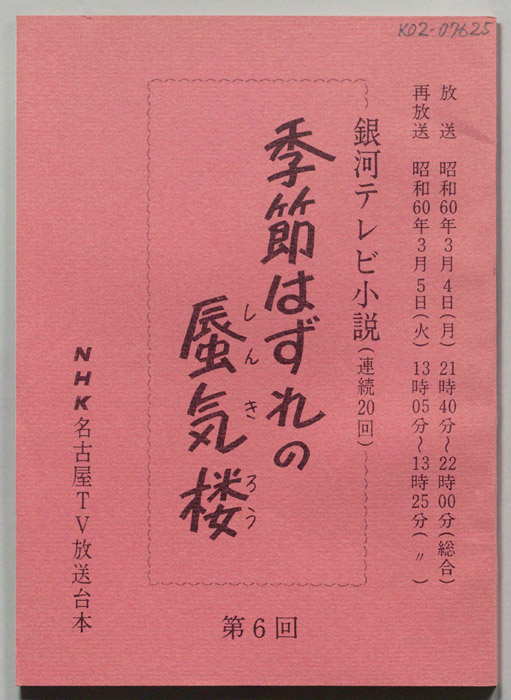 K02-07625
放送 昭和60年3月4日(月) 21時40分〜22時00分(総合)
再放送 昭和60年3月5日(火) 13時05分〜13時25分(〃)
銀河テレビ小説(連続20回)
季節はずれの
蜃気楼
しんきろう
第6回
NHK名古屋TV放送台本